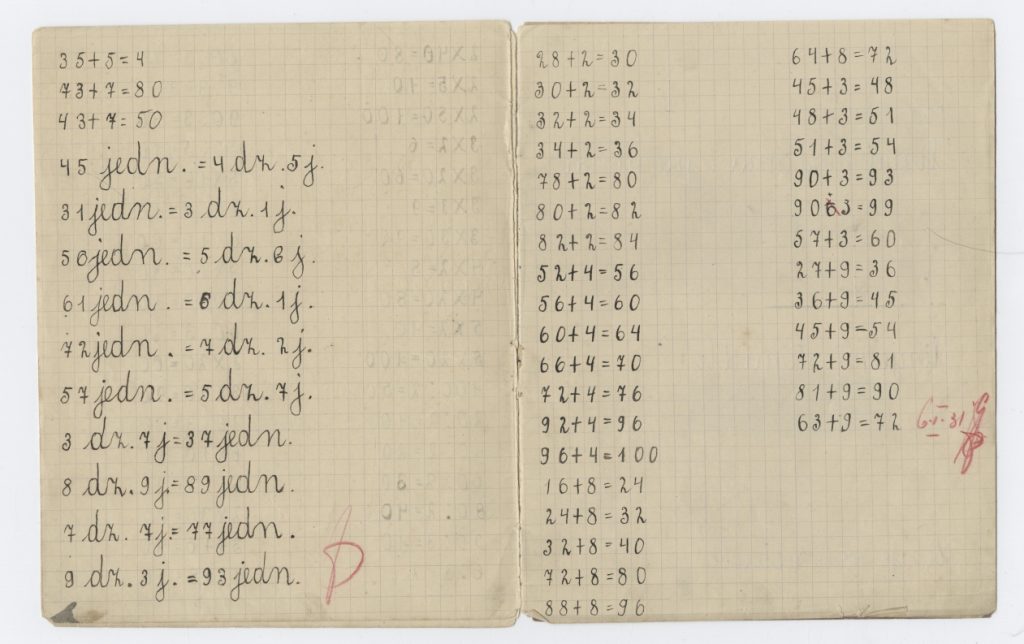 35+5=4
73+7=80
43+7=50
45 jedn. = 4 dz. 5 j.
31 jedn. = 3 dz. 1 j.
56 jedn. = 5 dz. 6 j.
61 jedn. = 6 dz. 1 j.
72 jedn. = 7 dz. 2 j.
57 jedn. = 5 dz. 7 j.
3 dz. 7 j = 37 jedn.
8 dz. 9 j. = 89 jedn.
7 dz. 7 j. = 77 jedn.
9 dz. 3 j. = 93 jedn.
28+2=30
30+2=32
32+2=34
34+2=36
78+2=80
80+2=82
82+2=84
52+4=56
56+4=60
60+4=64
66+4=70
72+4=76
92+4=96
96+4=100
16+8=24
24+8=32
32+8=40
72+8=80
88+8=96
64+8=72
45+3=48
48+3=51
51+3=54
90+3=93
57+3=60
27+9=36
36+9=45
45+9=54
72+9=81
81+9=90
63+9=72